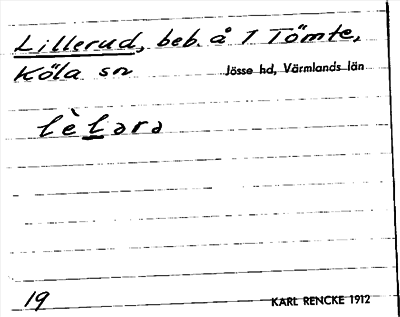 Lillerud, beb. å 1 Tömte,
Köla sn Jösse hd, Värmlands län
lèLərə
19 KARL RENCKE 1912